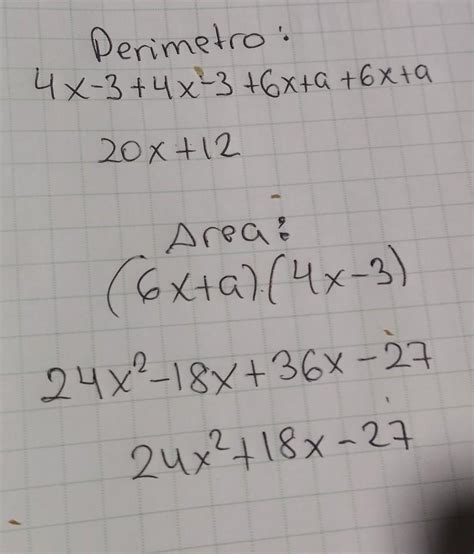 Perimetro:
4x-3+4x-3+6x+9+6x+9
20x+12
Area:
(6x+9).(4x-3)
24x²-18x+36x-27
24x²+18x-27